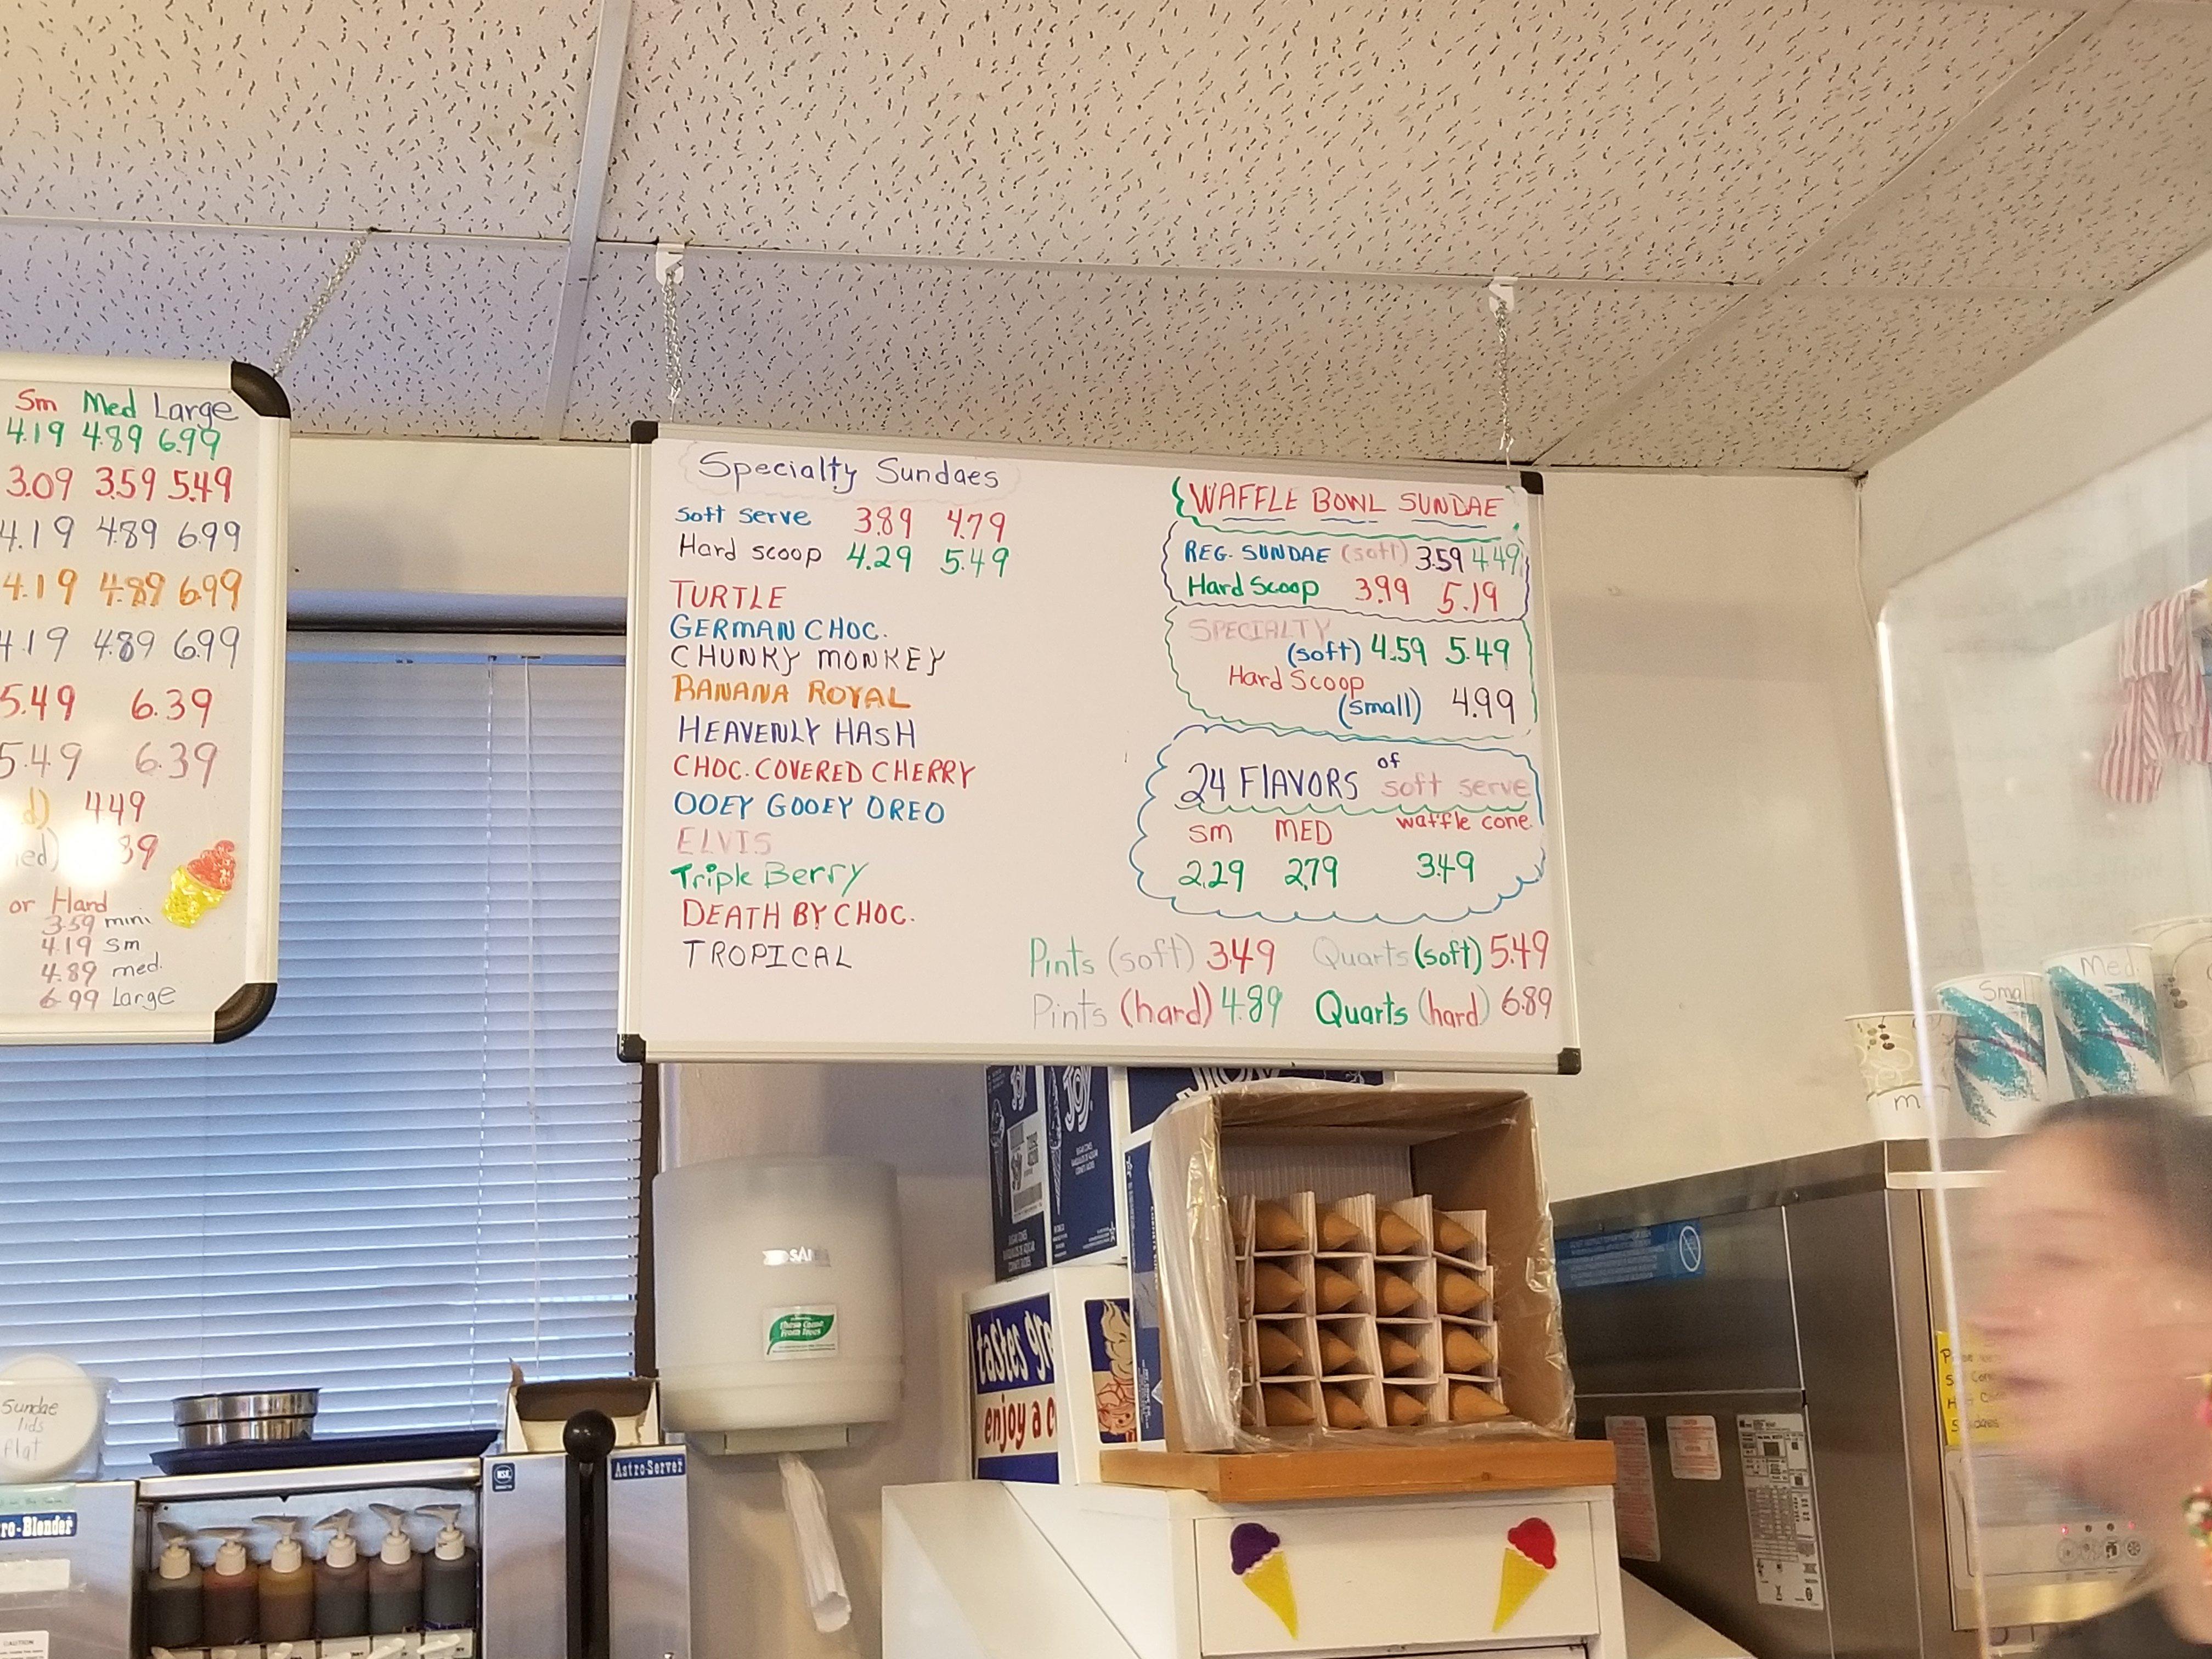 Sm Med Large
4.19 4.89 6.99
3.09 3.59 5.49
4.19 4.89 6.99
4.19 4.89 6.99
4.19 4.89 6.99
5.49 6.39
5.49 6.39
4.49
or Hand
3.59 mini
4.19 sm
4.89 med.
6.99 Large
Specialty Sundaes
Soft Serve 3.89 4.79
Hard scoop 4.29 5.49
TURTLE
GERMAN CHOC.
CHUNKY MONKEY
BANANA ROYAL
HEAVENLY HASH
CHOC. COVERED CHERRY
OOEY GOOEY OREO
ELVIS
Triple Berry
DEATH BY CHOC.
TROPICAL
WAFFLE BOWL SUNDAE
REG. SUNDAE (soft) 3.59 4.49
Hard Scoop 3.99 5.19
SPECIALTY
(soft) 4.59 5.49
Hard Scoop
(small) 4.99
24 FLAVORS of soft serve
sm MED waffle cone
2.29 2.79 3.49
Pints (soft) 3.49 Quarts (soft) 5.49
Pints (hard) 4.89 Quarts (hard) 6.89
Small
Med.
m
JOY
JOY
tastes gre
enjoy a c
SAN
These Come
From Trees
Sundae
lids
flat
ro-Blender
Astro-Server
NSF
CAUTION